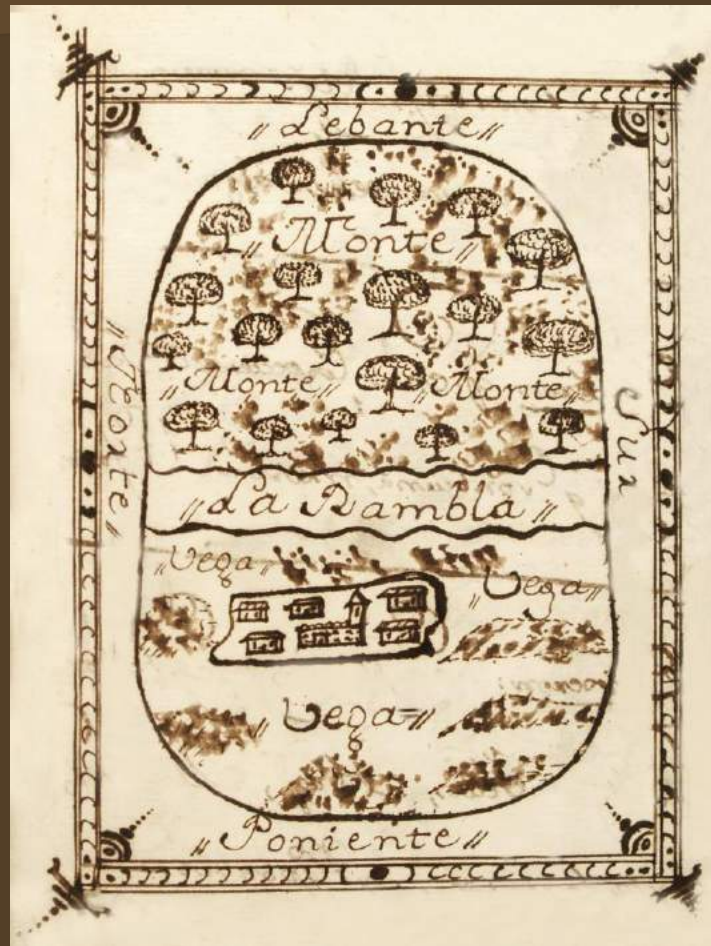 "Lebante"
"Monte"
"Monte" "Monte"
"Norte"
Sur
"La Rambla"
"Vega" "Vega"
"Vega"
"Poniente"